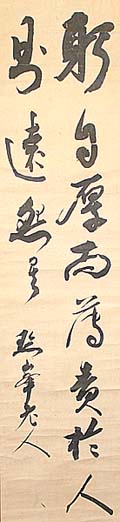 躬自厚而薄責於人
則遠怨矣 老人